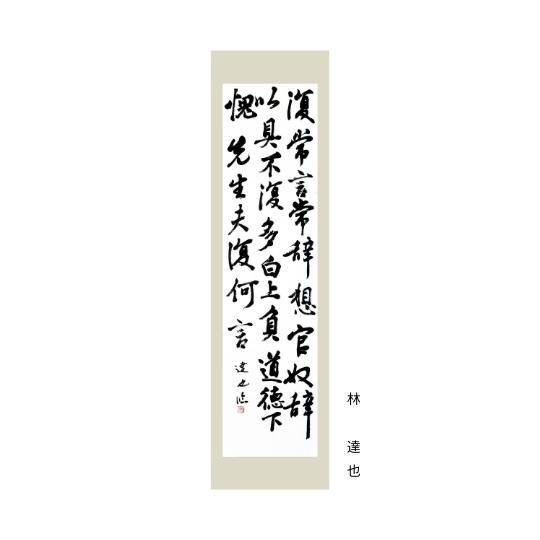 復常言常辞想官奴辞
以具不復多白上負道德下
愧先生夫復何言
達也臨
林 達也